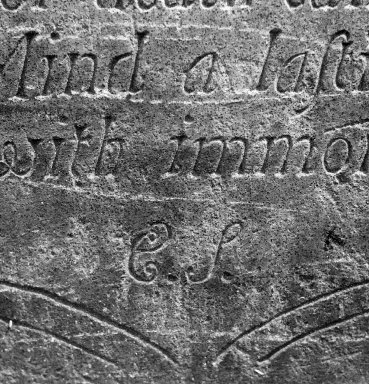 Mind a laſti
with immor
C. S.